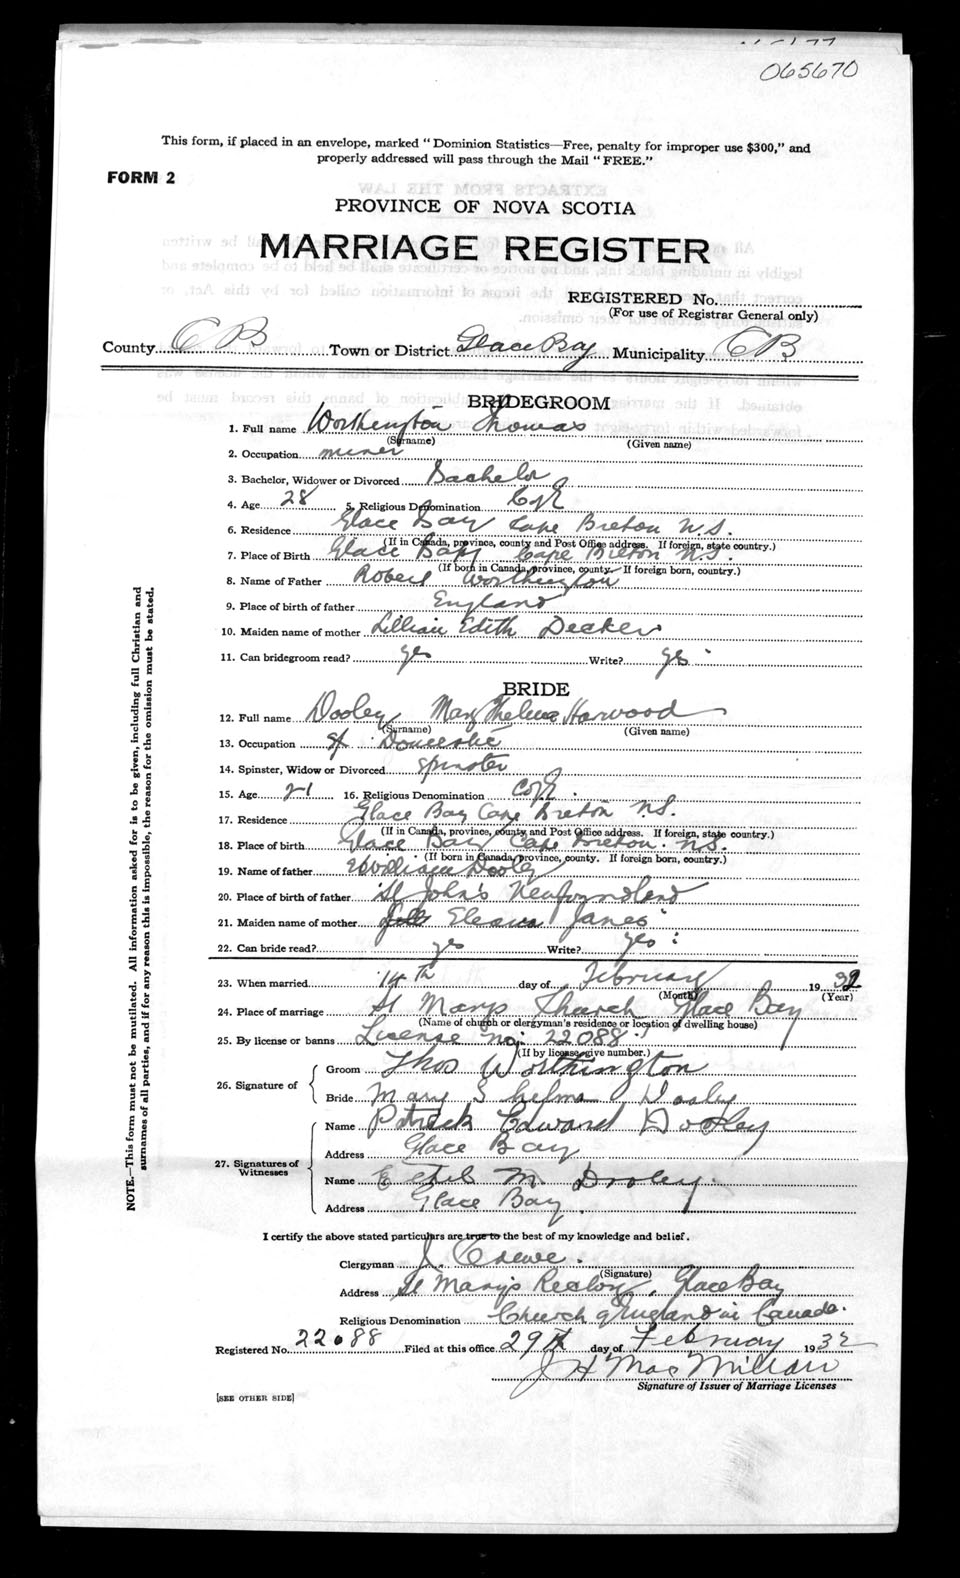 065670
This form, if placed in an envelope, marked "Dominion Statistics—Free, penalty for improper use $300," and
properly addressed will pass through the Mail "FREE."
FORM 2
PROVINCE OF NOVA SCOTIA
MARRIAGE REGISTER
REGISTERED No.
(For use of Registrar General only)
County C B Town or District Glace Bay Municipality C B
BRIDEGROOM
1. Full name Worthington Thomas
(Surname) (Given name)
2. Occupation miner
3. Bachelor, Widower or Divorced Bachelor
4. Age 28 5. Religious Denomination C of E
6. Residence Glace Bay Cape Breton N.S.
(If in Canada, province, county and Post Office address. If foreign, state country.)
7. Place of Birth Glace Bay Cape Breton N.S.
(If born in Canada, province, county. If foreign born, country.)
8. Name of Father Robert Worthington
9. Place of birth of father England
10. Maiden name of mother Lillian Edith Decker
11. Can bridegroom read? yes Write? yes
BRIDE
12. Full name Dooley Mary Thelma Harwood
(Surname) (Given name)
13. Occupation Domestic
14. Spinster, Widow or Divorced Spinster
15. Age 21 16. Religious Denomination C of E
17. Residence Glace Bay Cape Breton N.S.
(If in Canada, province, county and Post Office address. If foreign, state country.)
18. Place of birth Glace Bay Cape Breton. N.S.
(If born in Canada, province, county. If foreign born, country.)
19. Name of father William Dooley
20. Place of birth of father St John's Newfoundland
21. Maiden name of mother Janes
22. Can bride read? yes Write? yes
23. When married 14th day of February 1932
(Month) (Year)
24. Place of marriage St Marys Church Glace Bay
(Name of church or clergyman's residence or location of dwelling house)
25. By license or banns License no: 22088
(If by license, give number.)
26. Signature of
Groom Thos Worthington
Bride Mary Thelma Dooley
27. Signatures of Witnesses
Name Patrick Edward Dooley
Address Glace Bay
Name Ethel M. Dooley
Address Glace Bay.
I certify the above stated particulars are true to the best of my knowledge and belief.
Clergyman J. Crewe.
(Signature)
Address St Mary's Rectory, Glace Bay
Religious Denomination Church of England in Canada.
Registered No. 22088 Filed at this office 29th day of February 1932
J H MacMillan
Signature of Issuer of Marriage Licenses
[SEE OTHER SIDE]
NOTE.—This form must not be mutilated. All information asked for is to be given, including full Christian and
surnames of all parties, and if for any reason this is impossible, the reason for the omission must be stated.